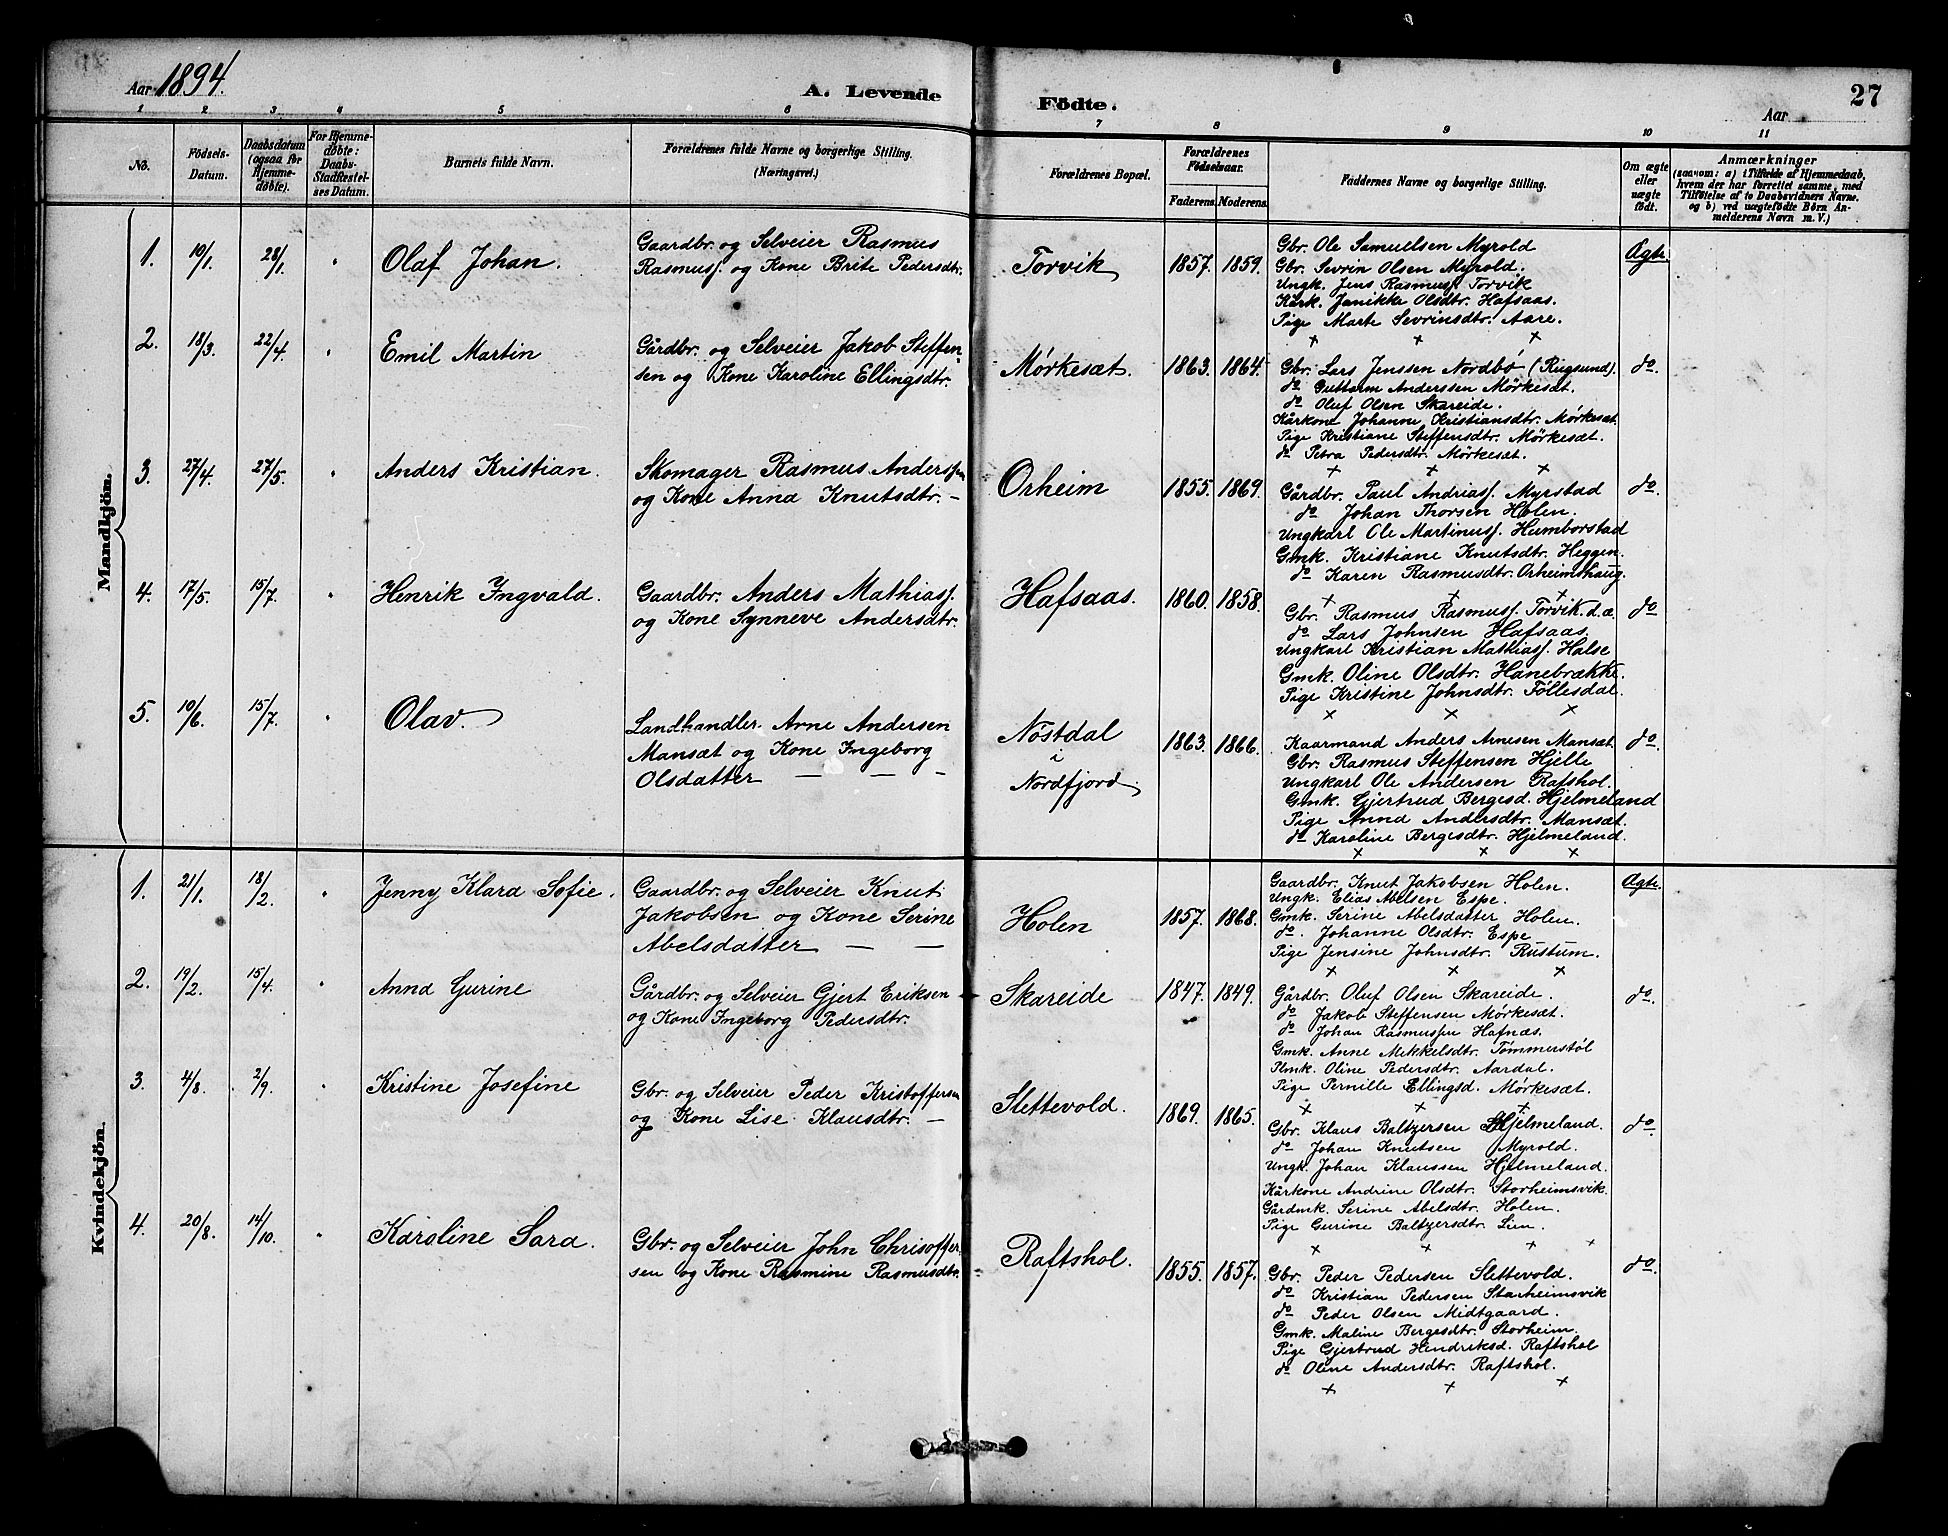 Aar 1894.
A. Levende Fødte.
Aar
27
1 2 3 4 5 6 7 8 9 10 11
No.
Fødsels-Datum.
Daabsdatum (ogsaa for Hjemme-døbte).
For Hjemme-døbte: Daabs-Stadfæstel-ses Datum.
Barnets fulde Navn.
Forældrenes fulde Navne og borgerlige Stilling. (Næringsvei.)
Forældrenes Bopæl.
Forældrenes Fødselsaar.
Faderens. Moderens.
Faddernes Navne og borgerlige Stilling.
Om ægte eller uægte født.
Anmærkninger
(saasom: a) i Tilfælde af Hjemmedaab, hvem der har forrettet samme, med Tilføielse af to Daabsvidners Navne. og b) ved uægtefødte Børn An-melderens Navn m. V.)
Mandkjøn.
1. 10/1. 28/1. " Olaf Johan.
Gaardbr. og Selveier Rasmus
Rasmuss. og Kone Brite Pedersdtr.
Torvik 1857. 1859.
Gbr. Ole Samuelsen Myrold
Gbr. Sevrin Olsen Myrold.
Ungk. Jens Rasmuss. Torvik
Kårk. Janikke Olsdtr. Hafsaas.
Pige Marte Sevrinsdtr. Aare.
Ægte.
2. 18/3. 22/4. " Emil Martin
Gårdbr. og Selveier Jakob Steffen-
sen og Kone Karoline Ellingsdtr.
Mørkesæt. 1863. 1864.
Gbr. Lars Jenssen Nordbö (Rugsund).
do Guttorm Anderssen Mörkesæt.
do Oluf Olsen Skareide.
Kårkone Johanne Kristiansdtr. Mörkesæt.
Pige Kristiane Steffensdtr. Mörkesæt.
do Petra Pedersdtr. Mörkesæt.
do.
3. 27/4. 27/5. " Anders Kristian.
Skomager Rasmus Anderssen
og Kone Anna Knutsdtr. —
Orheim 1855. 1869.
Gårdbr. Paul Andriass. Myrstad
do Johan Thorsen Holen.
Ungkarl Ole Martinuss. Humborstad
Gmk. Kristiane Knutsdtr. Heggen.
do Karen Rasmusdtr. Orheimshaug.
do.
4. 17/5. 15/7. " Henrik Ingvald.
Gaardbr. Anders Mathiass.
og Kone Synneve Andersdtr.
Hafsaas. 1860. 1858.
Gbr. Rasmus Rasmuss. Torvik. d.æ.
do Lars Johnsen Hafsaas.
Ungkarl Kristian Mathiass. Halse
Gmk. Oline Olsdtr. Hanebrække.
Pige Kristine Johnsdtr. Föllesdal.
do
5. 10/6. 15/7. " Olav.
Landhandler. Arne Andersen
Mansæt og Kone Ingeborg
Olsdatter — — -
Nöstdal
i
Nordfjord. 1863. 1866.
Kaarmand Anders Arnesen Mansæt.
Gbr. Rasmus Steffensen Hjelle
Ungkarl Ole Andersen Rafshol.
Gmk. Gjertrud Bergesd. Hjelmeland
Pige Anna Andersdtr. Mansæt.
do Karoline Bergesdtr. Hjelmeland.
do.
Kvindekjøn.
1. 21/1. 18/2. " Jenny Klara Sofie.
Gaardbr. og Selveier Knut
Jakobsen og Kone Serine
Abelsdatter — —
Holen 1857. 1868.
Gaardbr. Knut Jakobsen Holen.
Ungk. Elias Abelsen Espe.
Gmk. Serine Abelsdatter Holen.
do. Johanne Olsdtr. Espe
Pige Jensine Johnsdtr. Rustum.
Ægte.
2. 19/2. 15/4. " Anna Gurine
Gårdbr. og Selveier Gjert Eriksen
og Kone Ingeborg Pedersdtr.
Skareide 1847. 1849.
Gårdbr. Oluf Olsen Skareide.
do Jakob Steffensen Mörkesæt.
do Johan Rasmussen Hafnæs.
Gmk. Anne Mekkelsdtr. Tömmerstöl
Plmk. Oline Pedersdtr. Aardal.
Pige Pernille Ellingsd. Mörkesæt.
do.
3. 4/8. 2/9. " Kristine Josefine
Gbr. og Selveier Peder Kristoffersen
og Kone Lise Klausdtr. —
Slettevold. 1869. 1865.
Gbr. Klaus Baltzersen Hjelmeland.
do Johan Knutsen Myrold.
Ungk. Johan Klaussen Hjelmeland.
Kårkone Andrine Olsdtr. Storheimsvik.
Gårdmk. Serine Abelsdtr. Holen.
Pige Gurine Baltzersdtr. Lem.
do.
4. 20/8. 14/10. " Karoline Sara.
Gbr. og Selveier John Chrisoffer-
sen og Kone Rasmine Rasmusdtr.
Raftshol. 1855. 1857.
Gbr. Peder Pedersen Slettevold.
do Kristian Pedersen Storheimsvik
do Peder Olsen Midtgaard.
Gmk. Maline Bergesdtr. Storheim.
Pige Gjertrud Hendriksd. Raftshol
do Oline Andersdtr. Raftshol.
do.